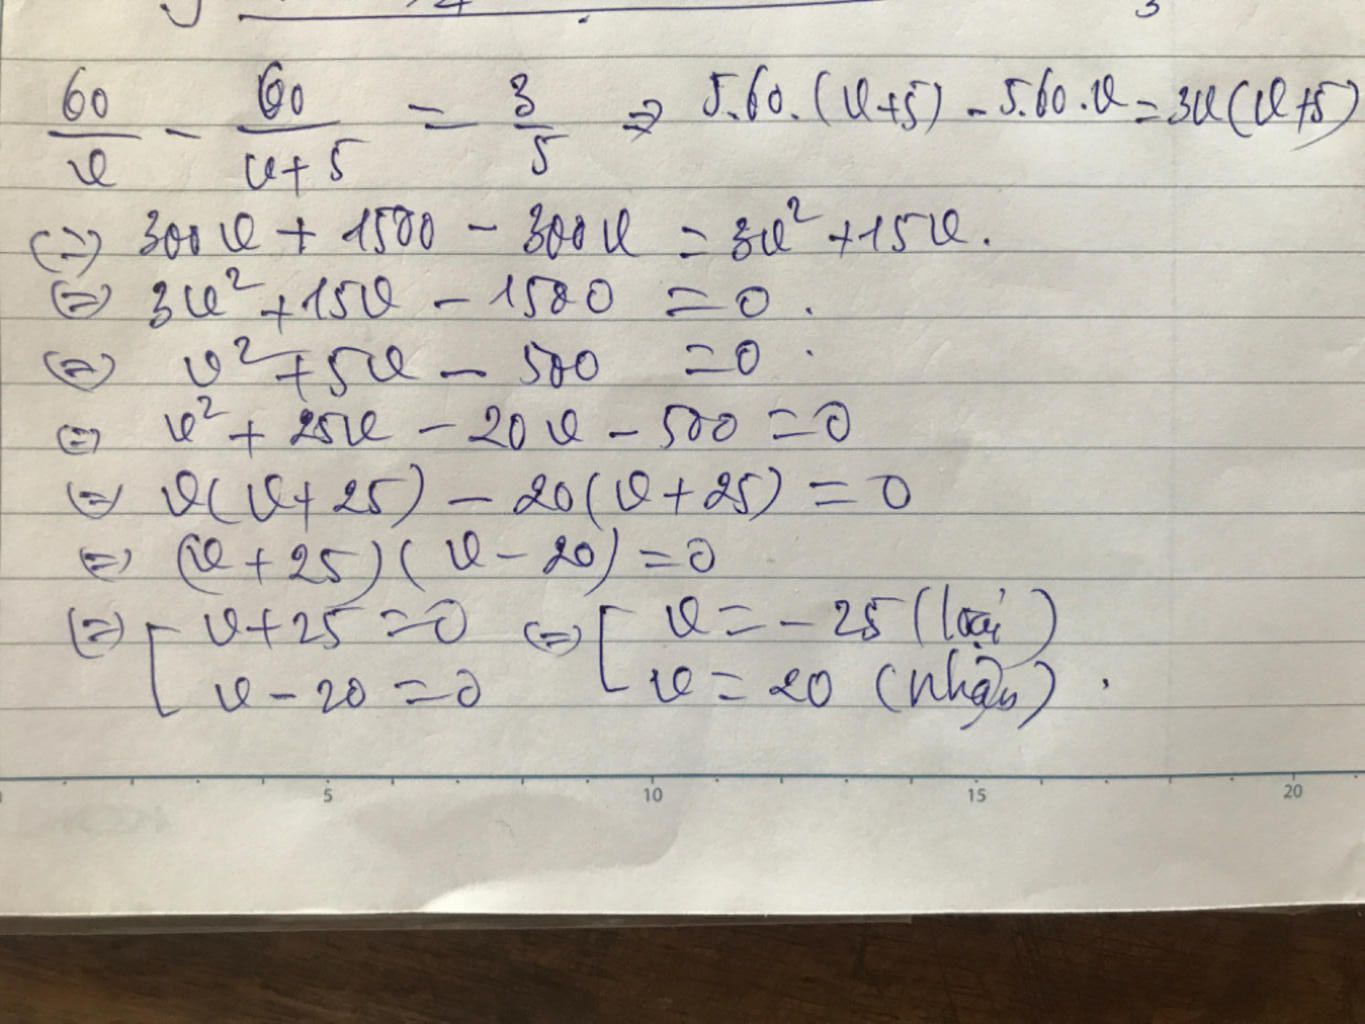 60/v - 60/v+5 = 3/5 => 5.60.(v+5) - 5.60.v = 3v(v+5)
(=) 300v + 1500 - 300v = 3v² + 15v.
(=) 3v² + 15v - 1500 = 0.
(=) v² + 5v - 500 = 0.
(=) v² + 25v - 20v - 500 = 0
(=) v(v+25) - 20(v+25) = 0
(=) (v+25)(v-20) = 0
(=) [ v+25 = 0 (=) [ v = -25 (loại)
v - 20 = 0 v = 20 (nhận).
5 10 15 20